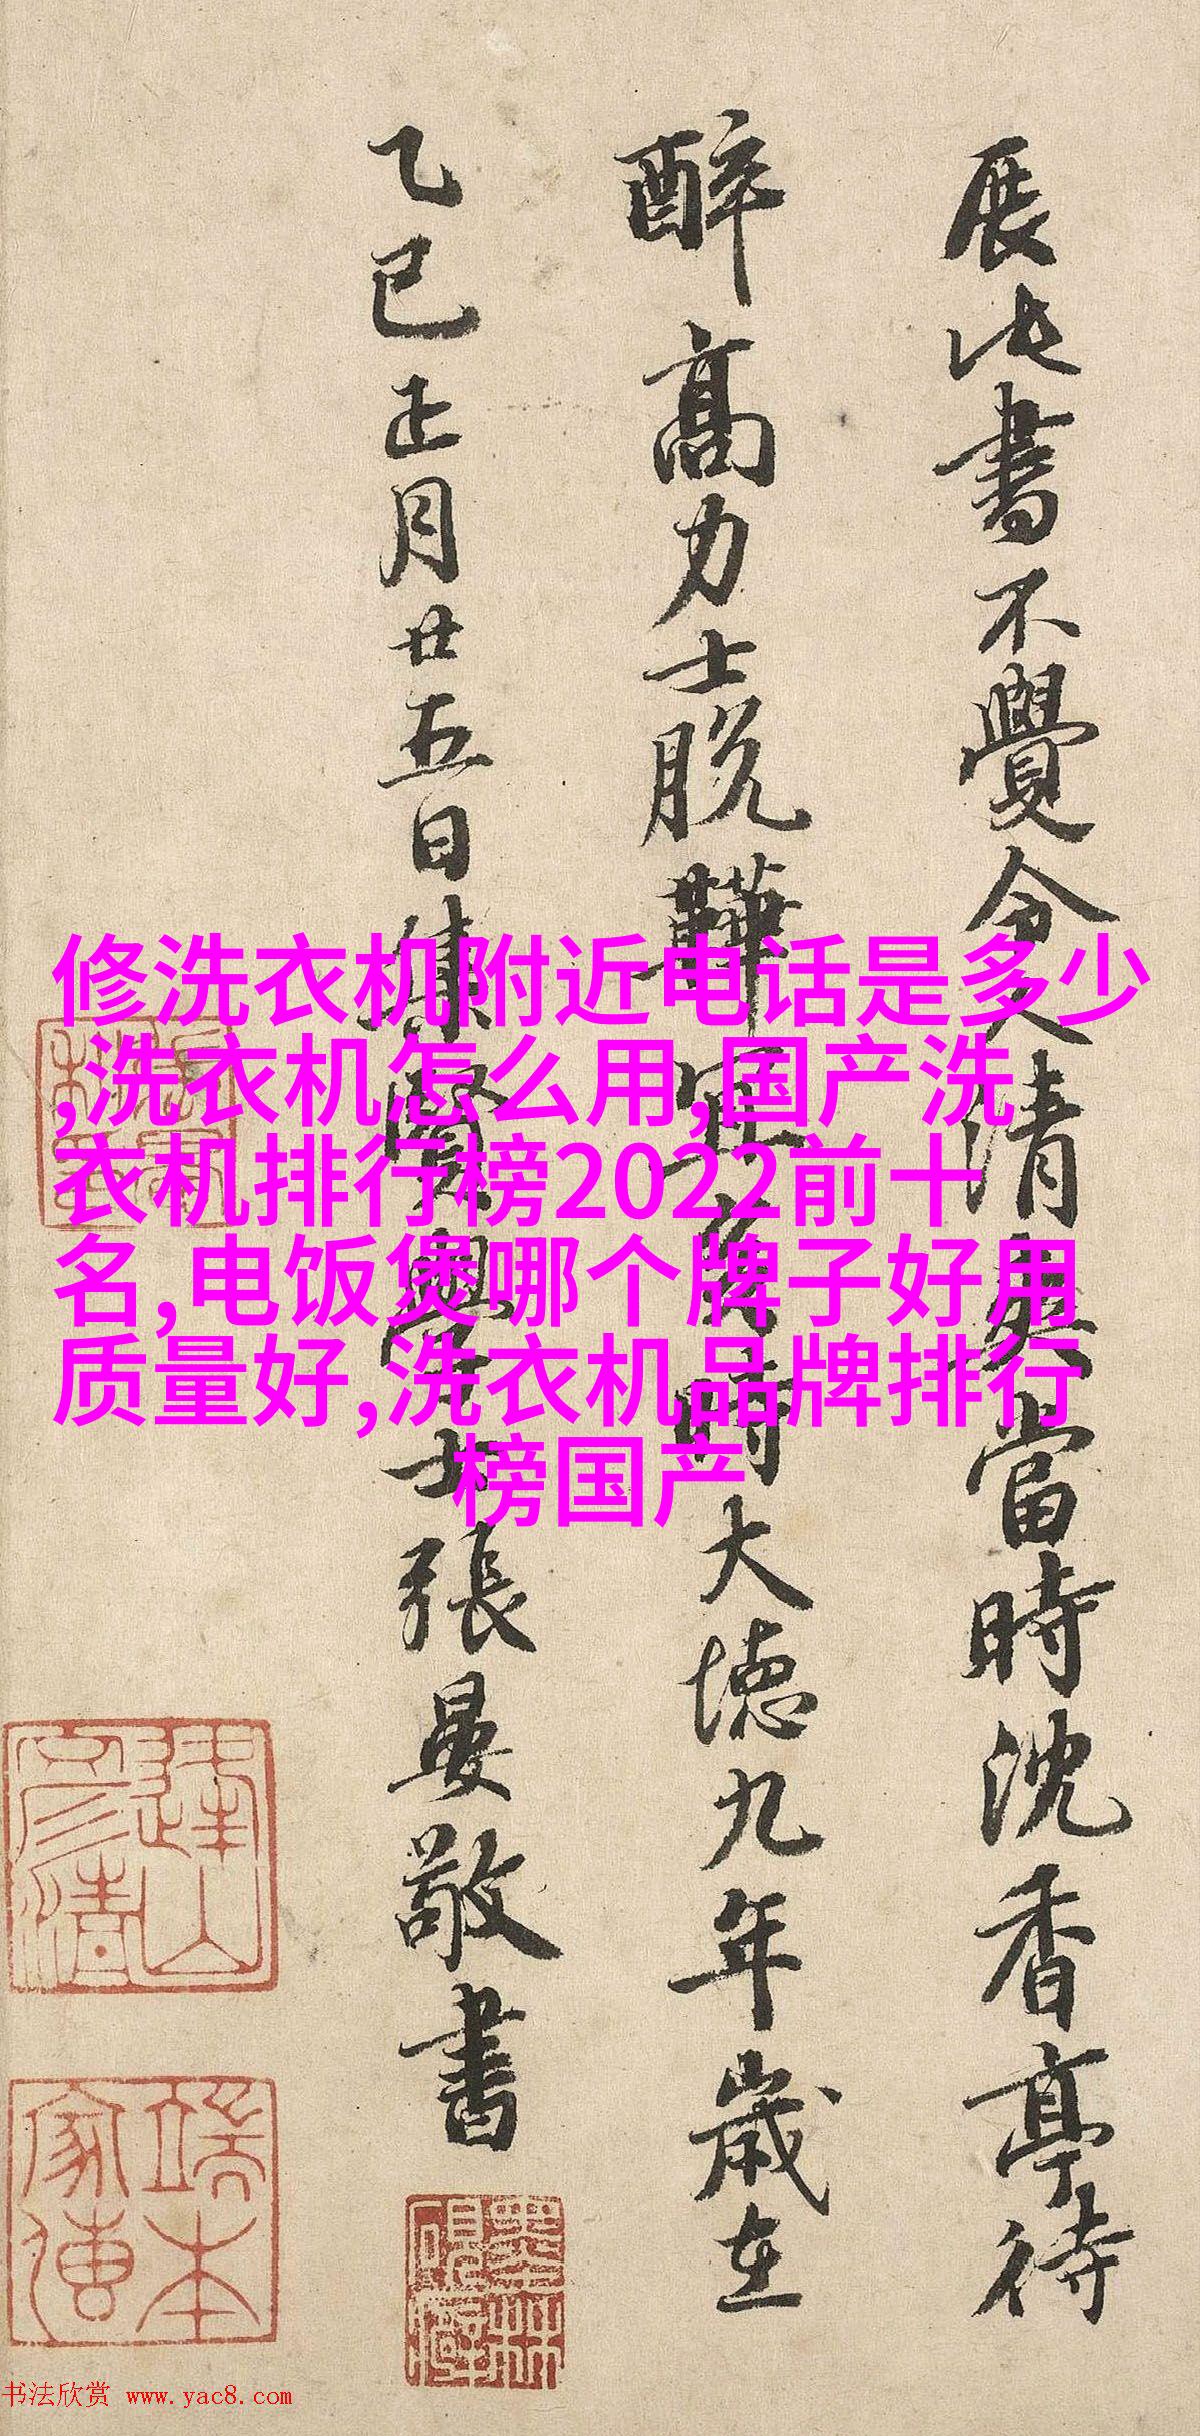 展此書不覺令人清爽當時沈香亭待
醉高力士脱鞾宜當時大德九年歲在
乙巳正月廿五日集賢學士張晏敬書
修洗衣机附近电话是多少
,洗衣机怎么用,国产洗
衣机排行榜2022前十
名,电饭煲哪个牌子好用
质量好,洗衣机品牌排行
榜国产
书法欣赏 www.yac8.com